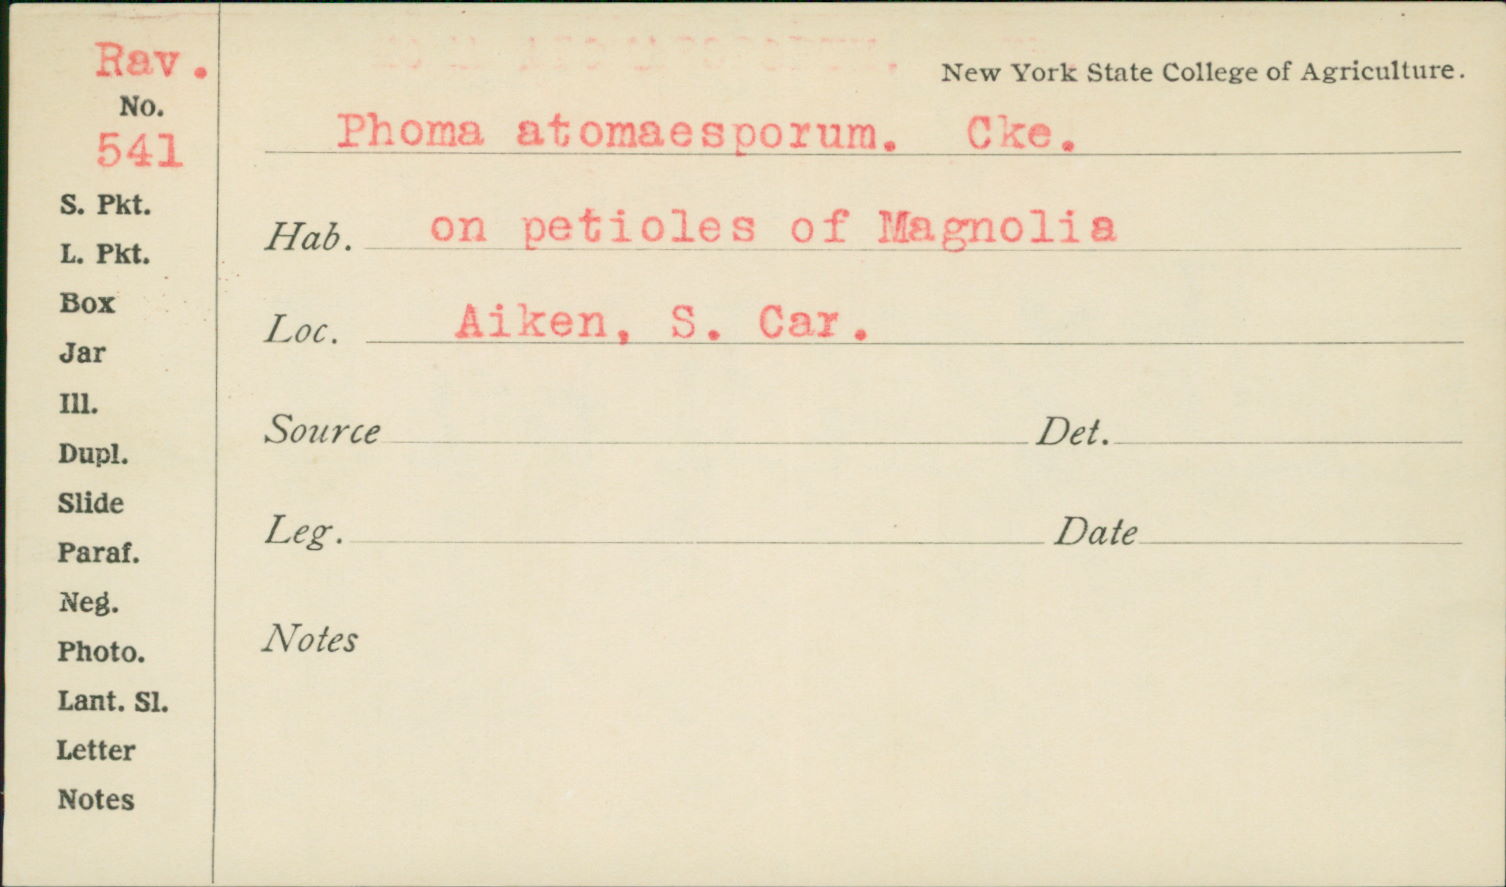 Rav.
No.
541
S. Pkt.
L. Pkt.
Box
Jar
Ill.
Dupl.
Slide
Paraf.
Neg.
Photo.
Lant. Sl.
Letter
Notes
New York State College of Agriculture.
Phoma atomaesporum. Cke.
Hab. on petioles of Magnolia
Loc. Aiken, S. Car.
Source Det.
Leg. Date
Notes